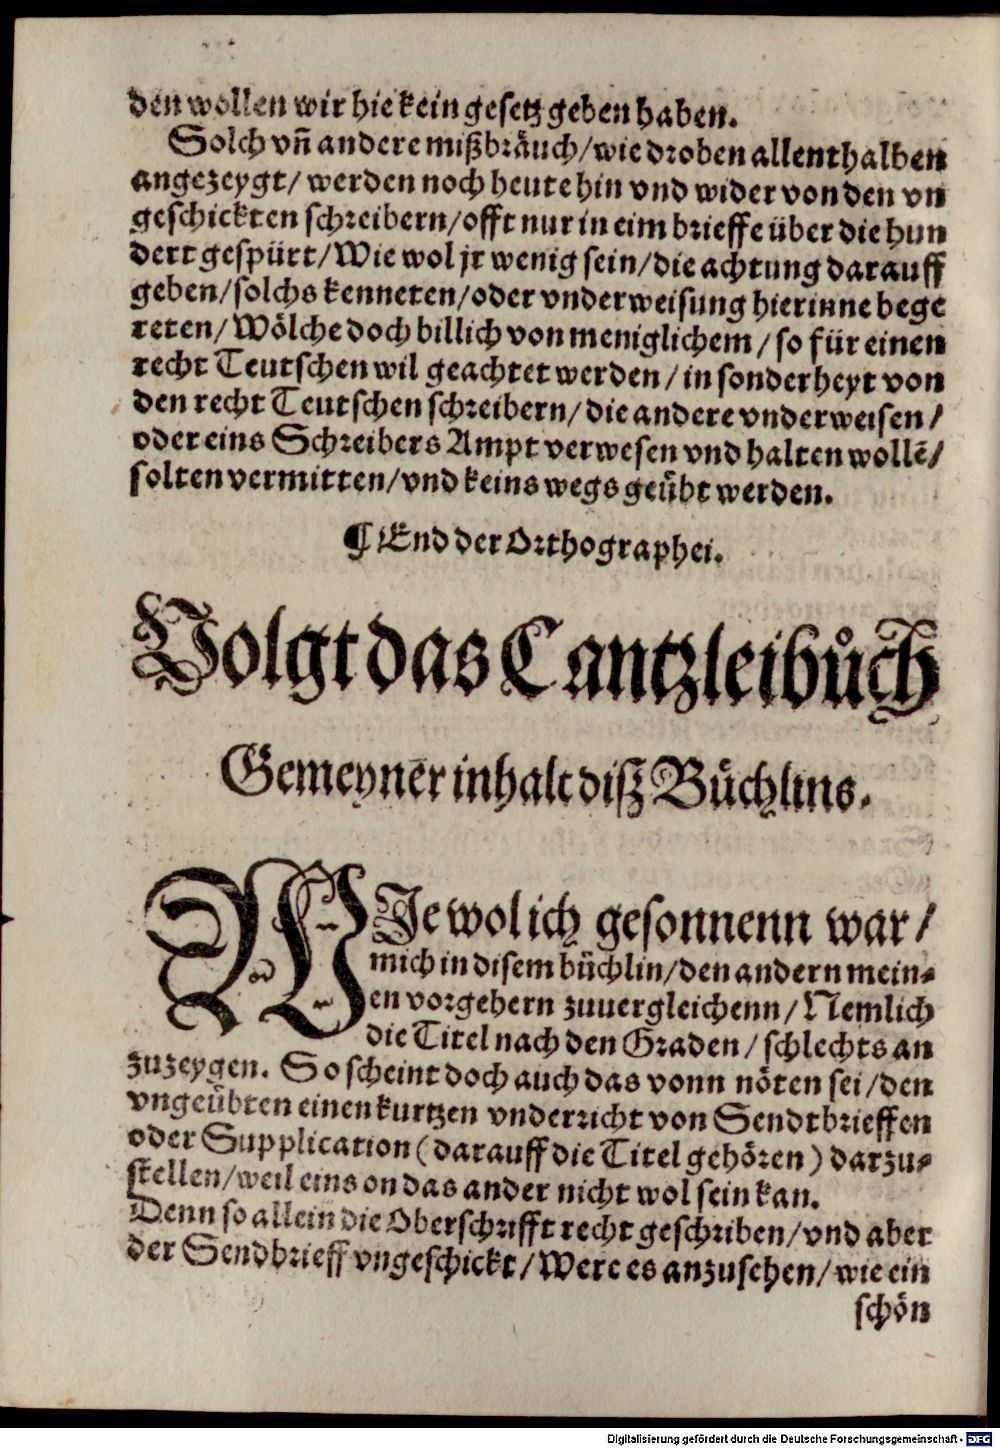 den wollen wir hie kein gesetz geben haben.
Solch vñ andere mißbräuch/wie droben allenthalben
angezeygt/ werden noch heute hin vnd wider von den vn
geschickten schreibern/offt nur in eim brieffe über die hun
dert gespürt/Wie wol jr wenig sein/die achtung darauff
geben/solchs kenneten/oder vnderweisung hierinne bege
reten/Wölche doch billich von meniglichem/so für einen
recht Teutschen wil geachtet werden/in sonderheyt von
den recht Teutschen schreibern/die andere vnderweisen/
oder eins Schreibers Ampt verwesen vnd halten wollē/
solten vermitten/vnd keins wegs geübt werden.
¶ End der Orthographei.
Volgt das Cantzleibůch
Gemeyner inhalt diß Büchlins.
WIe wol ich gesonnenn war/
mich in disem büchlin/den andern mein=
en vorgehern zuuergleichenn/Nemlich
die Titel nach den Graden/schlechts an
zuzeygen. So scheint doch auch das vonn nöten sei/den
vngeübten einen kurtzen vnderricht von Sendtbrieffen
oder Supplication (darauff die Titel gehören) darzu=
stellen/weil eins on das ander nicht wol sein kan.
Denn so allein die Oberschrifft recht geschriben/vnd aber
der Sendbrieff vngeschickt/Were es anzusehen/wie ein
schön
Digitalisierung gefördert durch die Deutsche Forschungsgemeinschaft - DFG